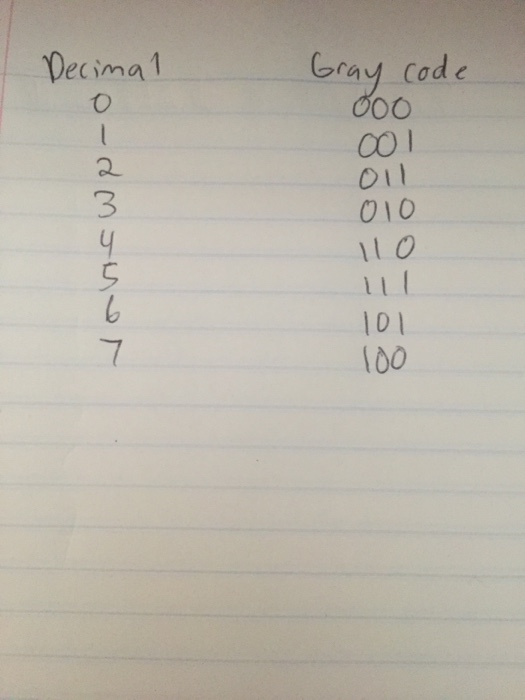 Decimal Gray code
0 000
1 001
2 011
3 010
4 110
5 111
6 101
7 100